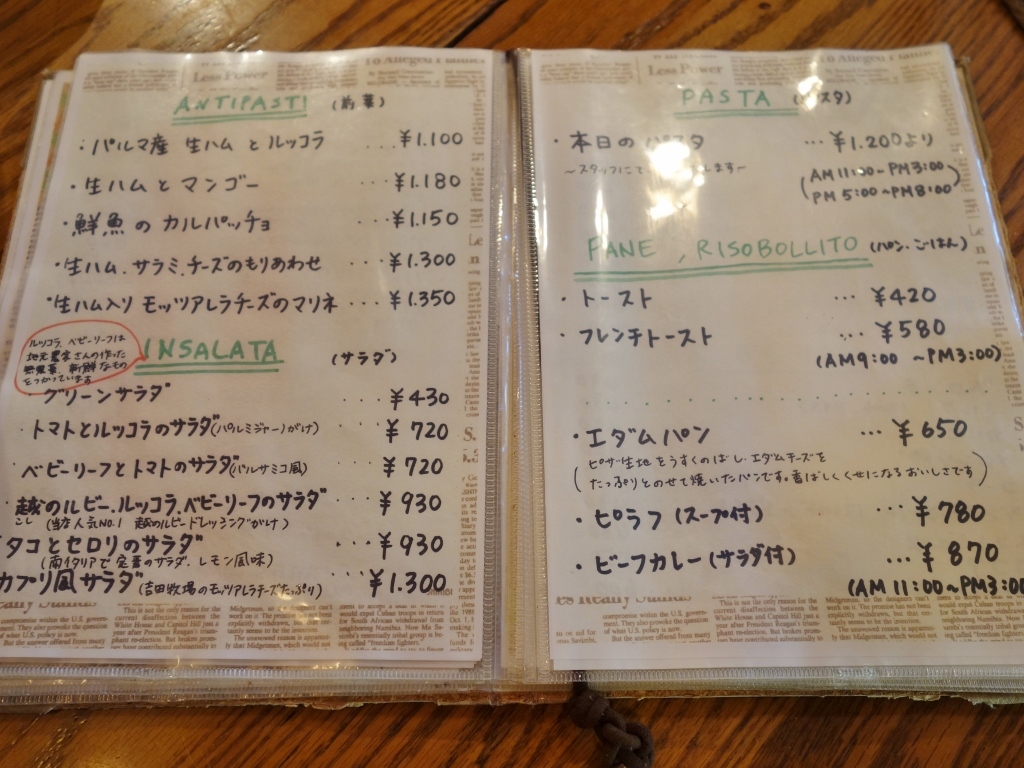 Less Power
ANTIPASTI (前菜)
・パルマ産 生ハム と ルッコラ ・・・¥1.100
・生ハム と マンゴー ・・・¥1.180
・鮮魚の カルパッチョ ・・・¥1.150
・生ハム、サラミ、チーズのもりあわせ ・・・¥1.300
・生ハム入り モッツアレラチーズのマリネ ・・・¥1.350
ルッコラ、ベビーリーフは
地元農家さんの作った
無農薬、新鮮なもの
をつかっています
INSALATA (サラダ)
・グリーンサラダ ・・・¥430
・トマトとルッコラのサラダ(パルミジャーノがけ) ・・・¥720
・ベビーリーフとトマトのサラダ(バルサミコ風) ・・・¥720
越のルビー、ルッコラ、ベビーリーフのサラダ ・・・¥930
こし (当店人気NO.1 越のルビードレッシングがけ)
タコとセロリのサラダ ・・・¥930
(南イタリアで定番のサラダ、レモン風味)
カプリ風サラダ(吉田牧場のモッツアレラチーズたっぷり) ・・・¥1.300
Less Power
PASTA
・本日の パスタ ・・・¥1.200より
(AM11:00~PM3:00
PM5:00~PM8:00)
PANE, RISOBOLLITO (パン、ごはん)
・トースト ・・・¥420
・フレンチトースト ・・・¥580
(AM9:00 ~PM3:00)
・エダムパン ・・・¥650
(ピザ生地をうすくのばし、エダムチーズを
たっぷりとのせて焼いたパンです。香ばしくくせになるおいしさです)
・ピラフ (スープ付) ・・・¥780
・ビーフカレー(サラダ付) ・・・¥870
(AM11:00~PM3:00